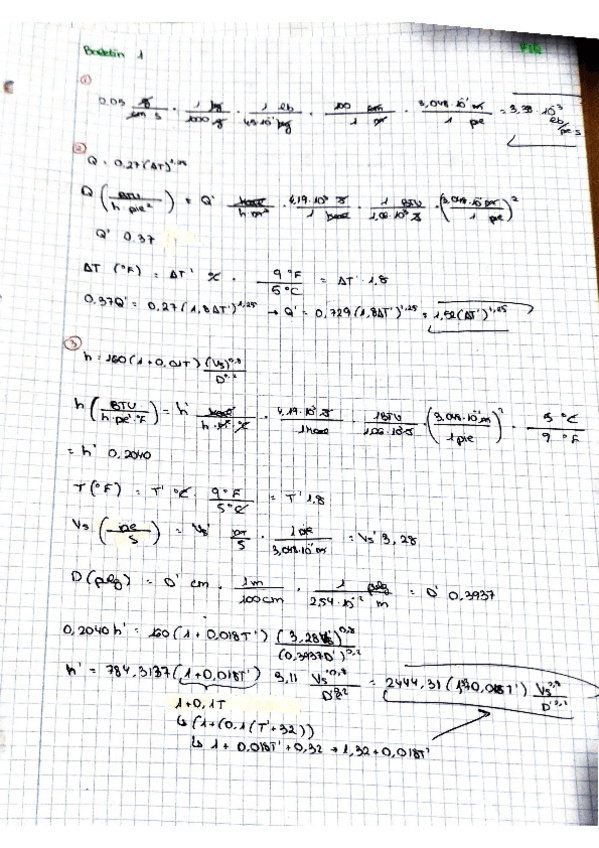 Boletín 1
FIQ
①
0.05 g/cm s · 1 kg/1000 g · 1 lb/4,5·10⁻¹ kg · 100 cm/1 m · 3,048·10⁻¹ m/1 pie = 3,38·10⁻³ lb/pie s
②
Q = 0.27 (ΔT)^1,25
Q (BTU/h pie²) = Q' kcal/h m² · 4,19·10³ J/1 kcal · 1 BTU/1,06·10³ J · (3,048·10⁻¹ m/1 pie)²
Q' 0.37
ΔT (°F) = ΔT' °C · 9°F/5°C = ΔT' 1,8
0.37Q' = 0,27 (1,8ΔT')^1,25 → Q' = 0,729 (1,8ΔT')^1,25 = 1,52(ΔT')^1,25
③
h = 160 (1 + 0,01T) (Vs)^0,8/D^0,2
h (BTU/h·pie²·°F) = h' kcal/h·m²·°C · 4,19·10³ J/1 kcal · 1BTU/1,06·10³ J · (3,048·10⁻¹ m/1 pie)² · 5°C/9°F
= h' 0,2040
T (°F) = T' °C · 9°F/5°C = T' 1,8
Vs (pie/s) = Vs' m/s · 1 pie/3,048·10⁻¹ m = Vs' 3,28
D (pulg) = D' cm · 1m/100cm · 1 pulg/2,54·10⁻² m = D' 0,3937
0,2040 h' = 160 (1 + 0,018T') (3,28Vs')^0,8/(0,3937D')^0,2
h' = 784,3137 (1+0,018T') 3,11 Vs'^0,8/D'^0,2 = 2444,31 ( 0,018T') Vs^0,8/D'^0,2
1+0,1T
↳ (1+(0,1(T'+32))
↳ 1 + 0.018T' + 0,32 → 1,32 + 0,018T'